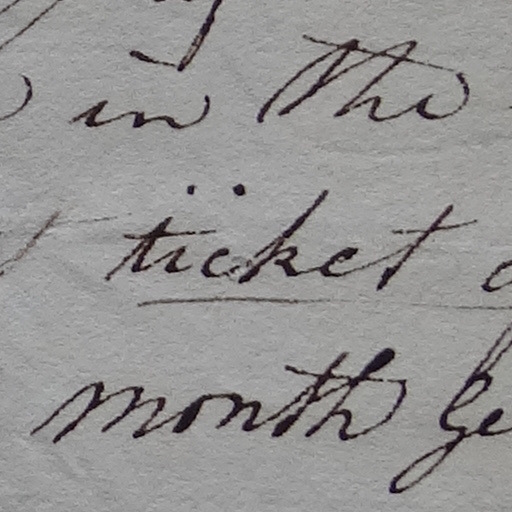 in the
ticket
month